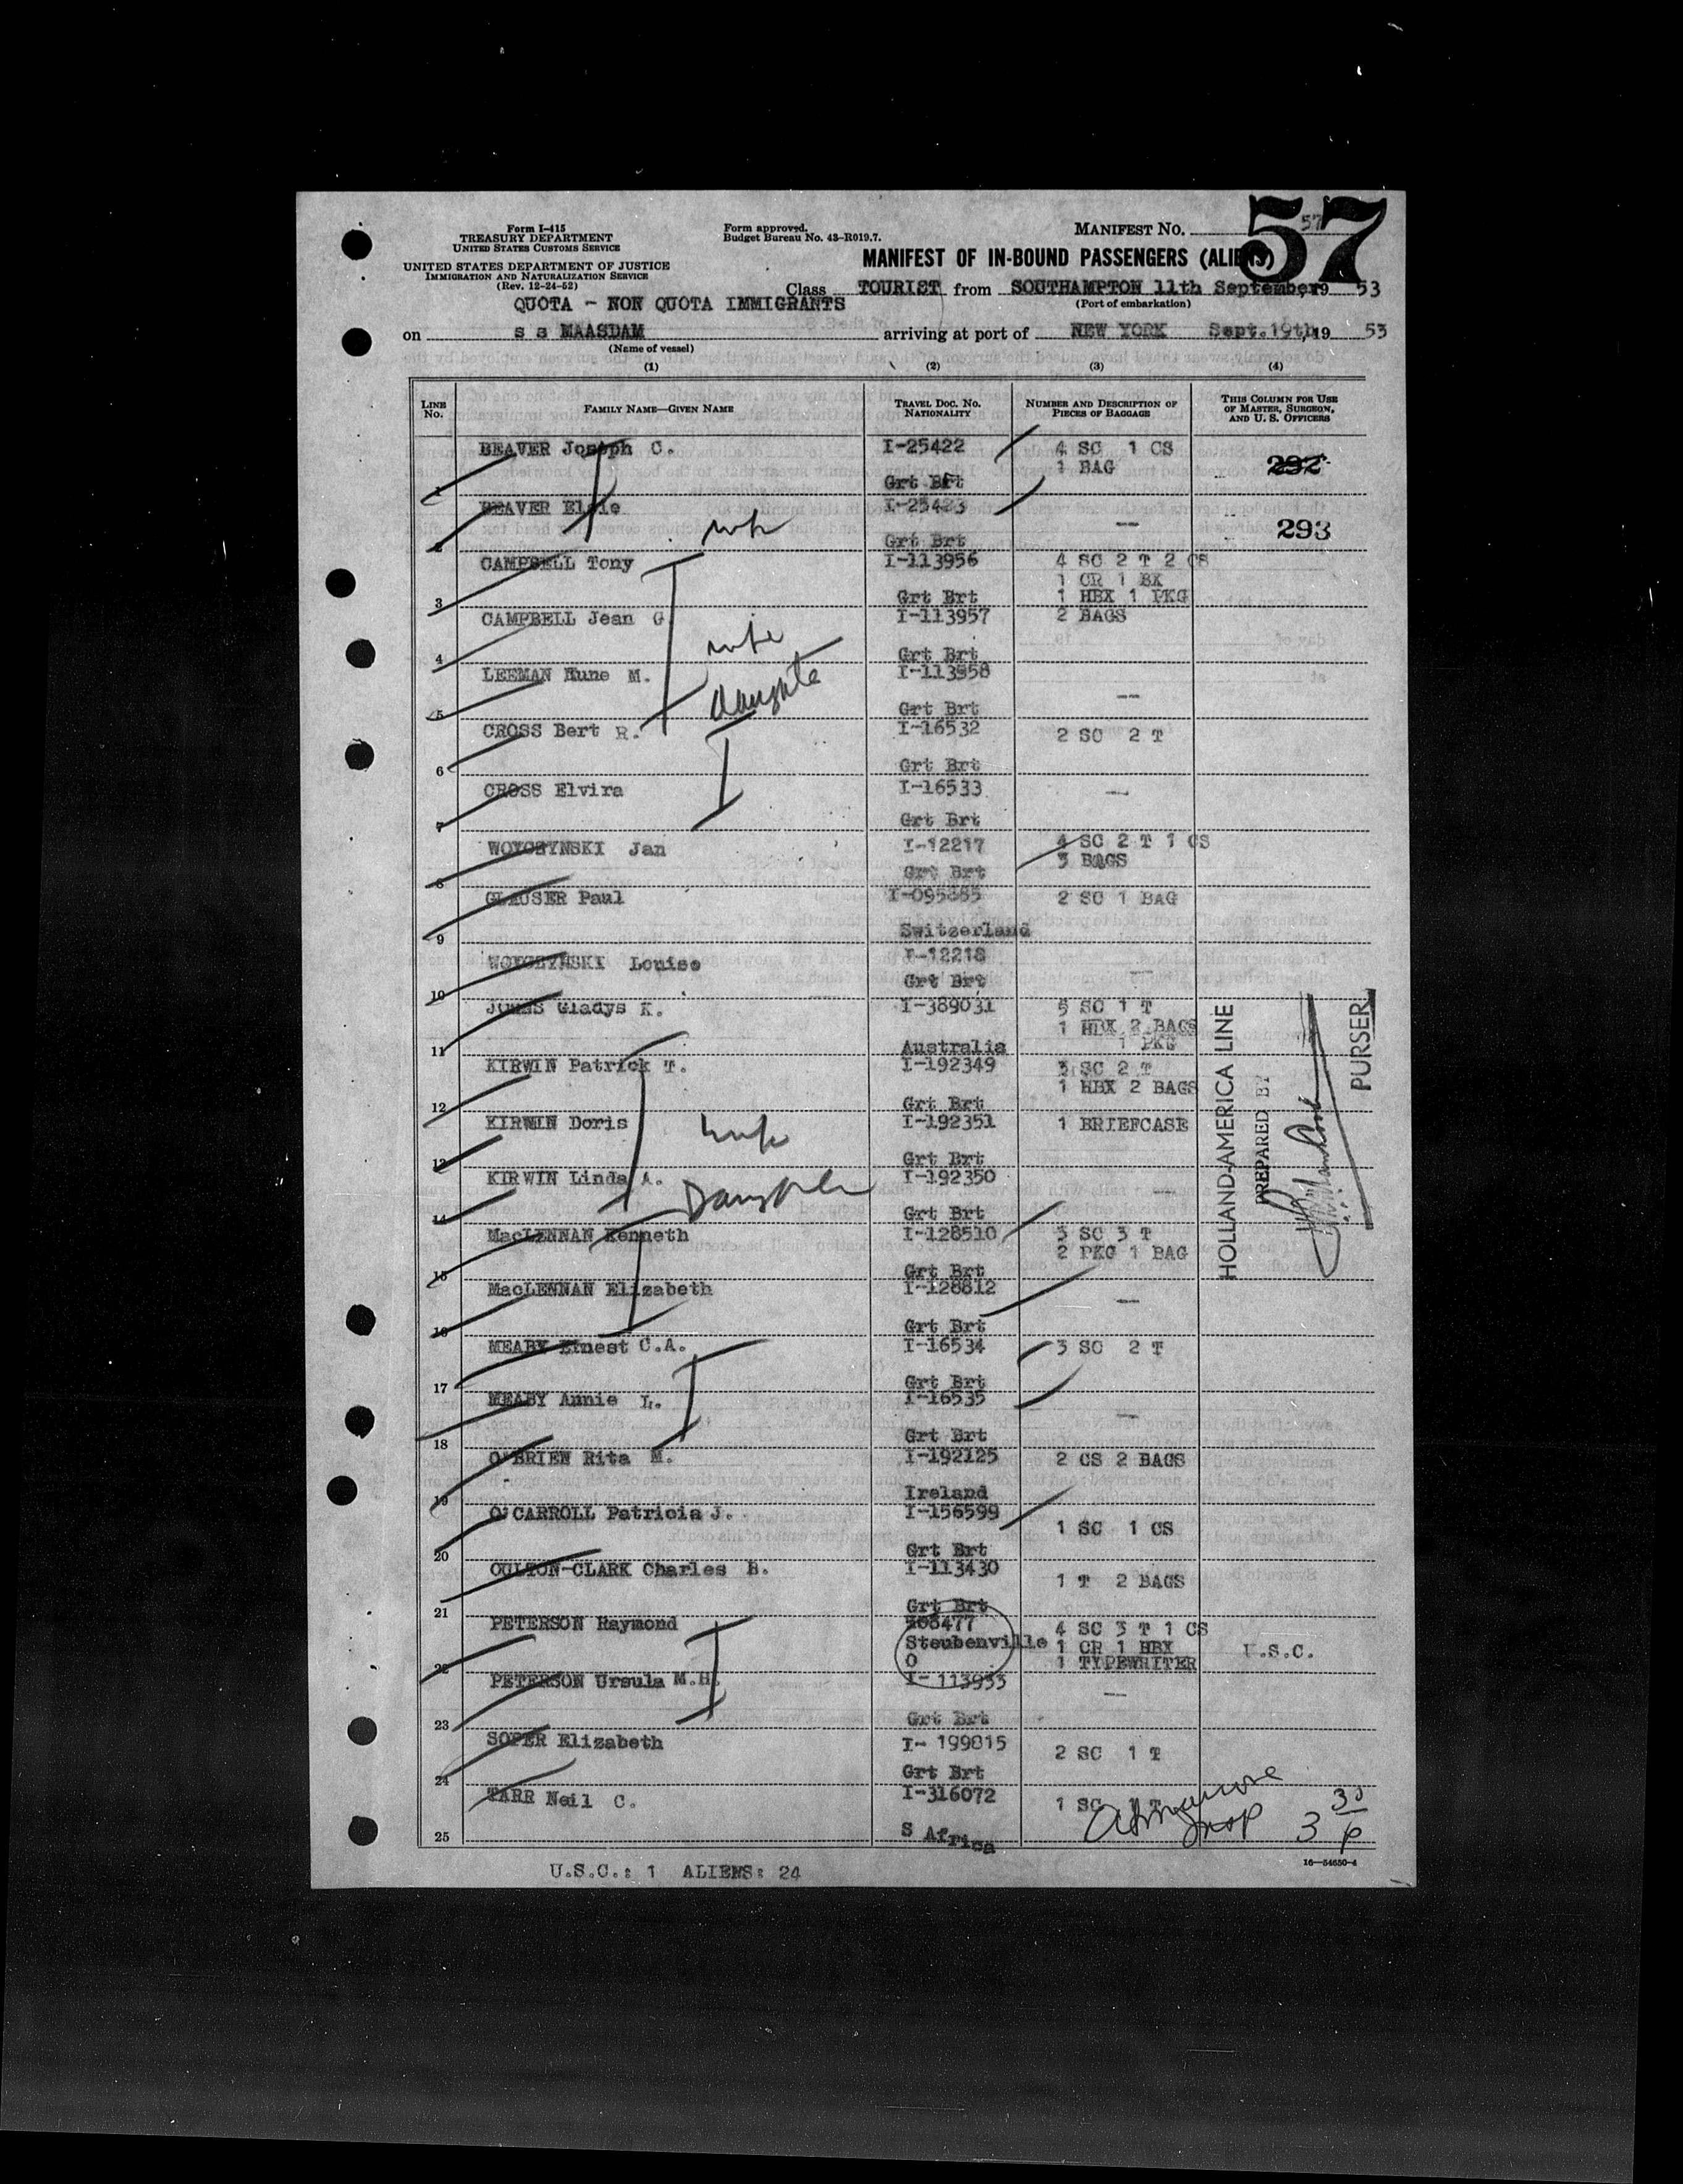 Form I-415
TREASURY DEPARTMENT
UNITED STATES CUSTOMS SERVICE
UNITED STATES DEPARTMENT OF JUSTICE
IMMIGRATION AND NATURALIZATION SERVICE
(Rev. 12-24-52)
Form approved.
Budget Bureau No. 43-R019.7.
MANIFEST No. 57
57
MANIFEST OF IN-BOUND PASSENGERS (ALIENS)
Class TOURIST from SOUTHAMPTON 11th September, 19 53
(Port of embarkation)
QUOTA - NON QUOTA IMMIGRANTS
on s s MAASDAM arriving at port of NEW YORK Sept.19th, 19 53
(Name of vessel)
(1) (2) (3) (4)
LINE No. FAMILY NAME—GIVEN NAME TRAVEL DOC. No. NATIONALITY NUMBER AND DESCRIPTION OF PIECES OF BAGGAGE THIS COLUMN FOR USE OF MASTER, SURGEON, AND U. S. OFFICERS
BEAVER Joseph C. I-25422 4 SC 1 CS
1 BAG 292
1 Grt Brt
BEAVER Elsie I-25423 --
wife 293
2 Grt Brt
CAMPBELL Tony I-113956 4 SC 2 T 2 CS
1 CR 1 BX
3 Grt Brt 1 HBX 1 PKG
CAMPBELL Jean G I-113957 2 BAGS
wife
4 Grt Brt
LEEMAN Eune M. I-113958 --
daughte
5 Grt Brt
CROSS Bert R. I-16532 2 SC 2 T
6 Grt Brt
CROSS Elvira I-16533 --
7 Grt Brt
WOYCZYNSKI Jan I-12217 4 SC 2 T 1 CS
3 BAGS
8 Grt Brt
GLAUSER Paul I-095885 2 SC 1 BAG
9 Switzerland
WOYCZYNSKI Louise I-12218 --
10 Grt Brt
JONES Gladys K. I-389031 5 SC 1 T
1 HBX 2 BAGS
11 Australia 1 PKG
KIRWIN Patrick T. I-192349 3 SC 2 T
1 HBX 2 BAGS
12 Grt Brt
KIRWIN Doris I-192351 1 BRIEFCASE
wife
13 Grt Brt
KIRWIN Linda A. I-192350 --
Daughter
14 Grt Brt
MacLENNAN Kenneth I-128510 3 SC 3 T
2 PKG 1 BAG
15 Grt Brt
MacLENNAN Elizabeth I-128812 --
16 Grt Brt
MEABY Ernest C.A. I-16534 3 SC 2 T
17 Grt Brt
MEABY Annie L. I-16535 --
18 Grt Brt
O'BRIEN Rita M. I-192125 2 CS 2 BAGS
19 Ireland
O'CARROLL Patricia J. I-156599 1 SC 1 CS
20 Grt Brt
OULTON-CLARK Charles B. I-113430 1 T 2 BAGS
21 Grt Brt
PETERSON Raymond 208477 4 SC 3 T 1 CS
Steubenville 1 CR 1 HBX U.S.C.
22 O 1 TYPEWRITER
PETERSON Ursula M.H. I- 113933 --
23 Grt Brt
SOPER Elizabeth I- 199815 2 SC 1 T
24 Grt Brt
TARR Neil C. I-316072 1 SC 1 T
25 S Africa
Insp 3 30 p
HOLLAND-AMERICA LINE
PREPARED BY
PURSER
16—54650-4
U.S.C.: 1 ALIENS: 24